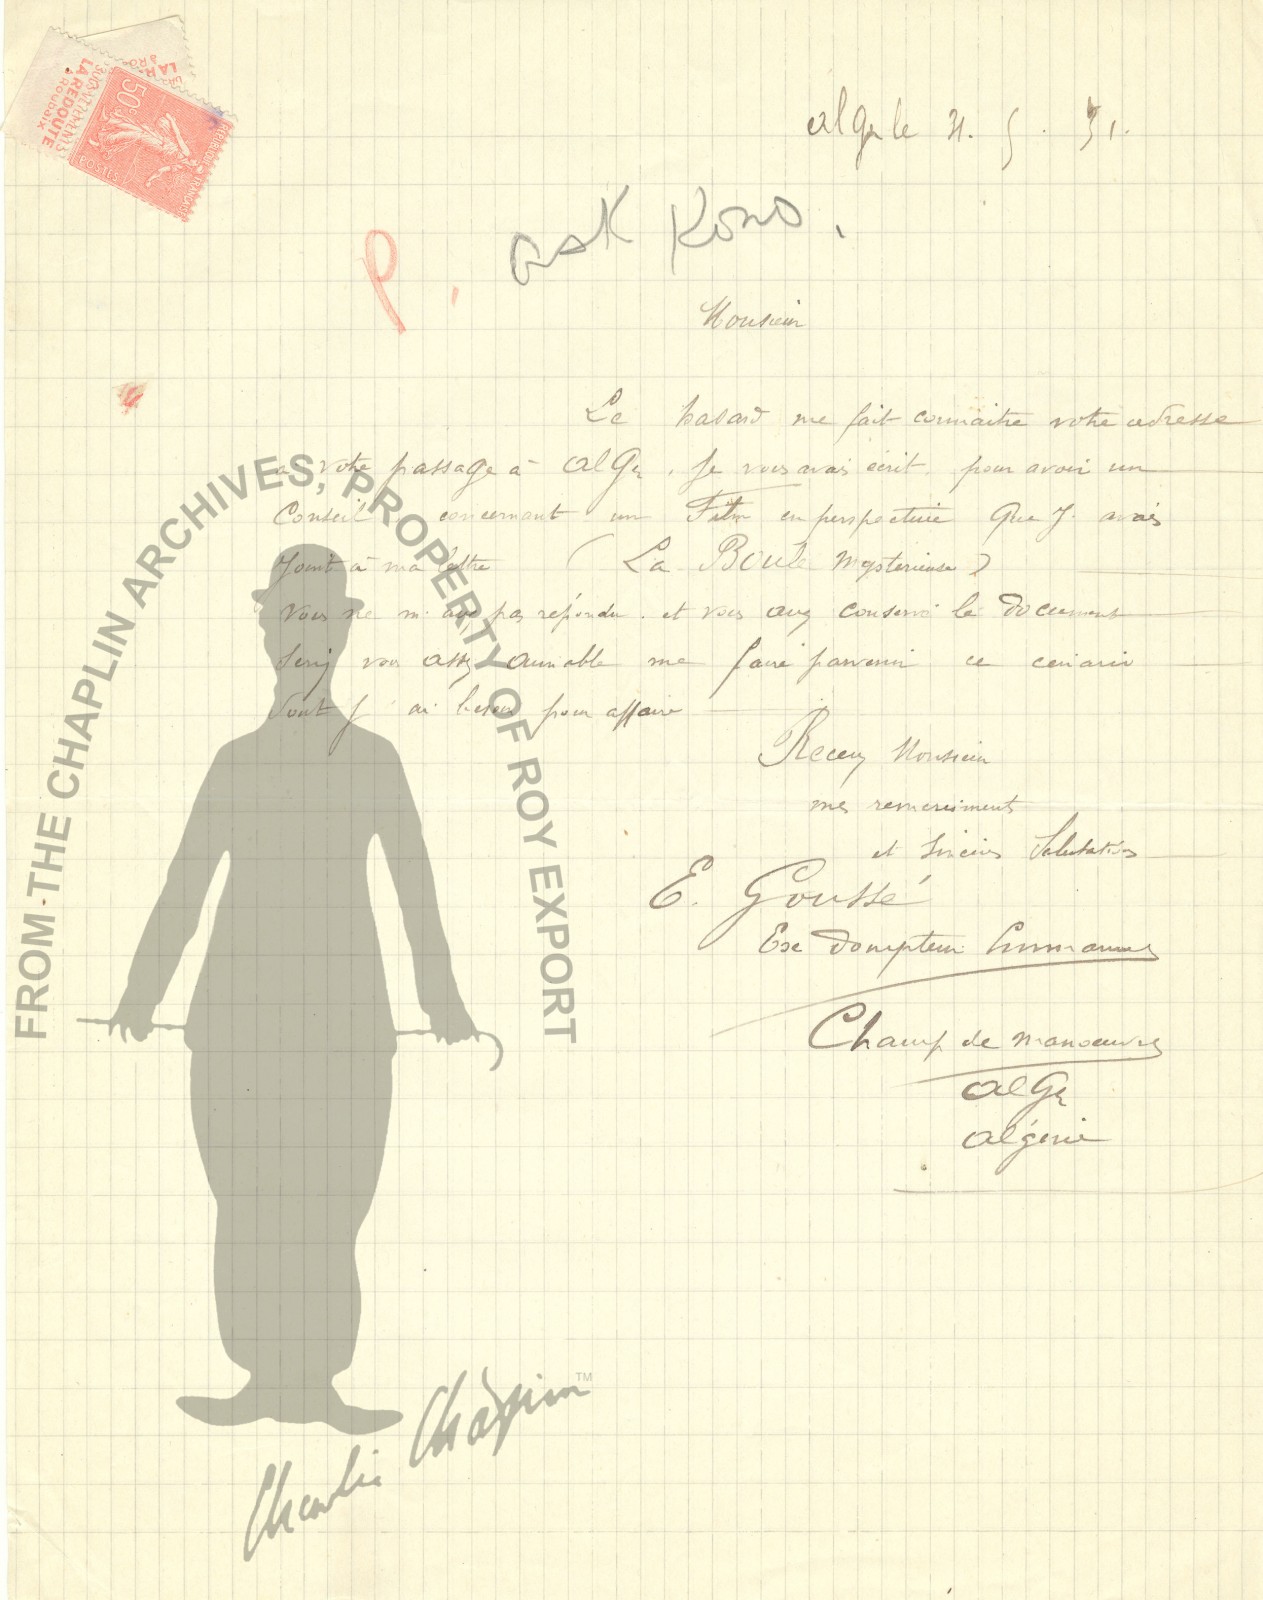 50c
POSTES
RÉPUBLIQUE FRANÇAISE
VÊTEMENTS
LA REDOUTE
à Roubaix
Alger le 21. 5. 31.
P. ask Kono.
Monsieur
Le hasard me fait connaitre votre adresse
a votre passage à Alger. Je vous avais écrit pour avoir un
Conseil concernant un Film en perspective Que J. avais
Joint à ma lettre (La Boule mysterieuse)
Vous ne m'avez pas répondu. et vous avez conservé le document
Seriez vous assez aimable me faire parvenir ce cenario
Dont J'ai besoin pour affaire
Recevez Monsieur
mes remerciments
et sincères Salutations
E. Goussé
Ex Dompteur
Champ de manoeuvres
Alger
Algérie
FROM THE CHAPLIN ARCHIVES, PROPERTY OF ROY EXPORT
Charlie Chaplin™